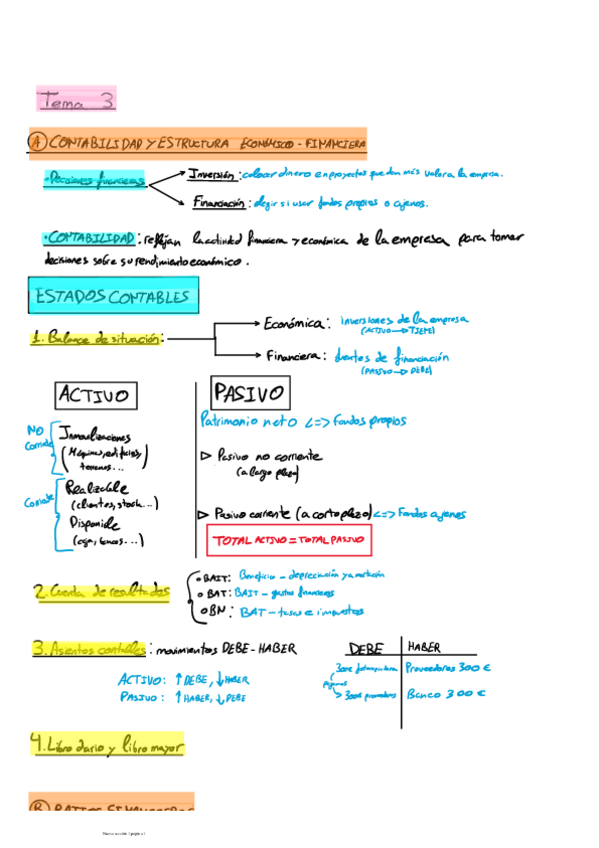 Tema 3
A CONTABILIDAD Y ESTRUCTURA ECONÓMICO - FINANCIERA
• Decisiones financieras
Inversión: colocar dinero en proyectos que dan más valor a la empresa.
Financiación: elegir si usar fondos propios o ajenos.
• CONTABILIDAD: reflejan la actividad financiera y económica de la empresa para tomar
decisiones sobre su rendimiento económico.
ESTADOS CONTABLES
1. Balance de situación:
Económica: inversiones de la empresa
(ACTIVO → TIENE)
Financiera: fuentes de financiación
(PASIVO → DEBE)
ACTIVO
PASIVO
NO Corriente
Inmovilizaciones
(Máquinas, edificios,
terrenos...)
Corriente
Realizable
(clientes, stock...)
Disponible
(caja, bancos...)
Patrimonio neto <=> Fondos propios
▷ Pasivo no corriente
(a largo plazo)
▷ Pasivo corriente (a corto plazo) <=> Fondos ajenos
TOTAL ACTIVO = TOTAL PASIVO
2. Cuenta de resultados
• BAIT: Beneficio - depreciación y amortización
• BAT: BAIT - gastos financieros
• BN: BAT - tasas e impuestos
3. Asientos contables: movimientos DEBE - HABER
ACTIVO: ↑ DEBE, ↓ HABER
PASIVO: ↑ HABER, ↓ DEBE
DEBE HABER
300€ Proveedores 300 €
300€ proveedores Banco 300 €
4. Libro diario y libro mayor
B RATIOS FINANCIEROS